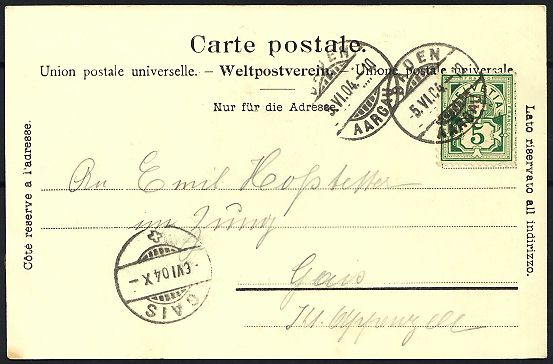 Carte postale.
Union postale universelle. – Weltpostverein. – Unione postale universale
Nur für die Adresse.
BADEN
5.VI.04.
AARGAU
BADEN
-5.VI.04.
AARGAU
HELVETIA
5
Côté réservé a l'adresse.
Lato riservato all indirizzo.
An Emil Hofstetter
im Zung
Gais
Kt. Appenzell
-6.VI.04.X-
GAIS